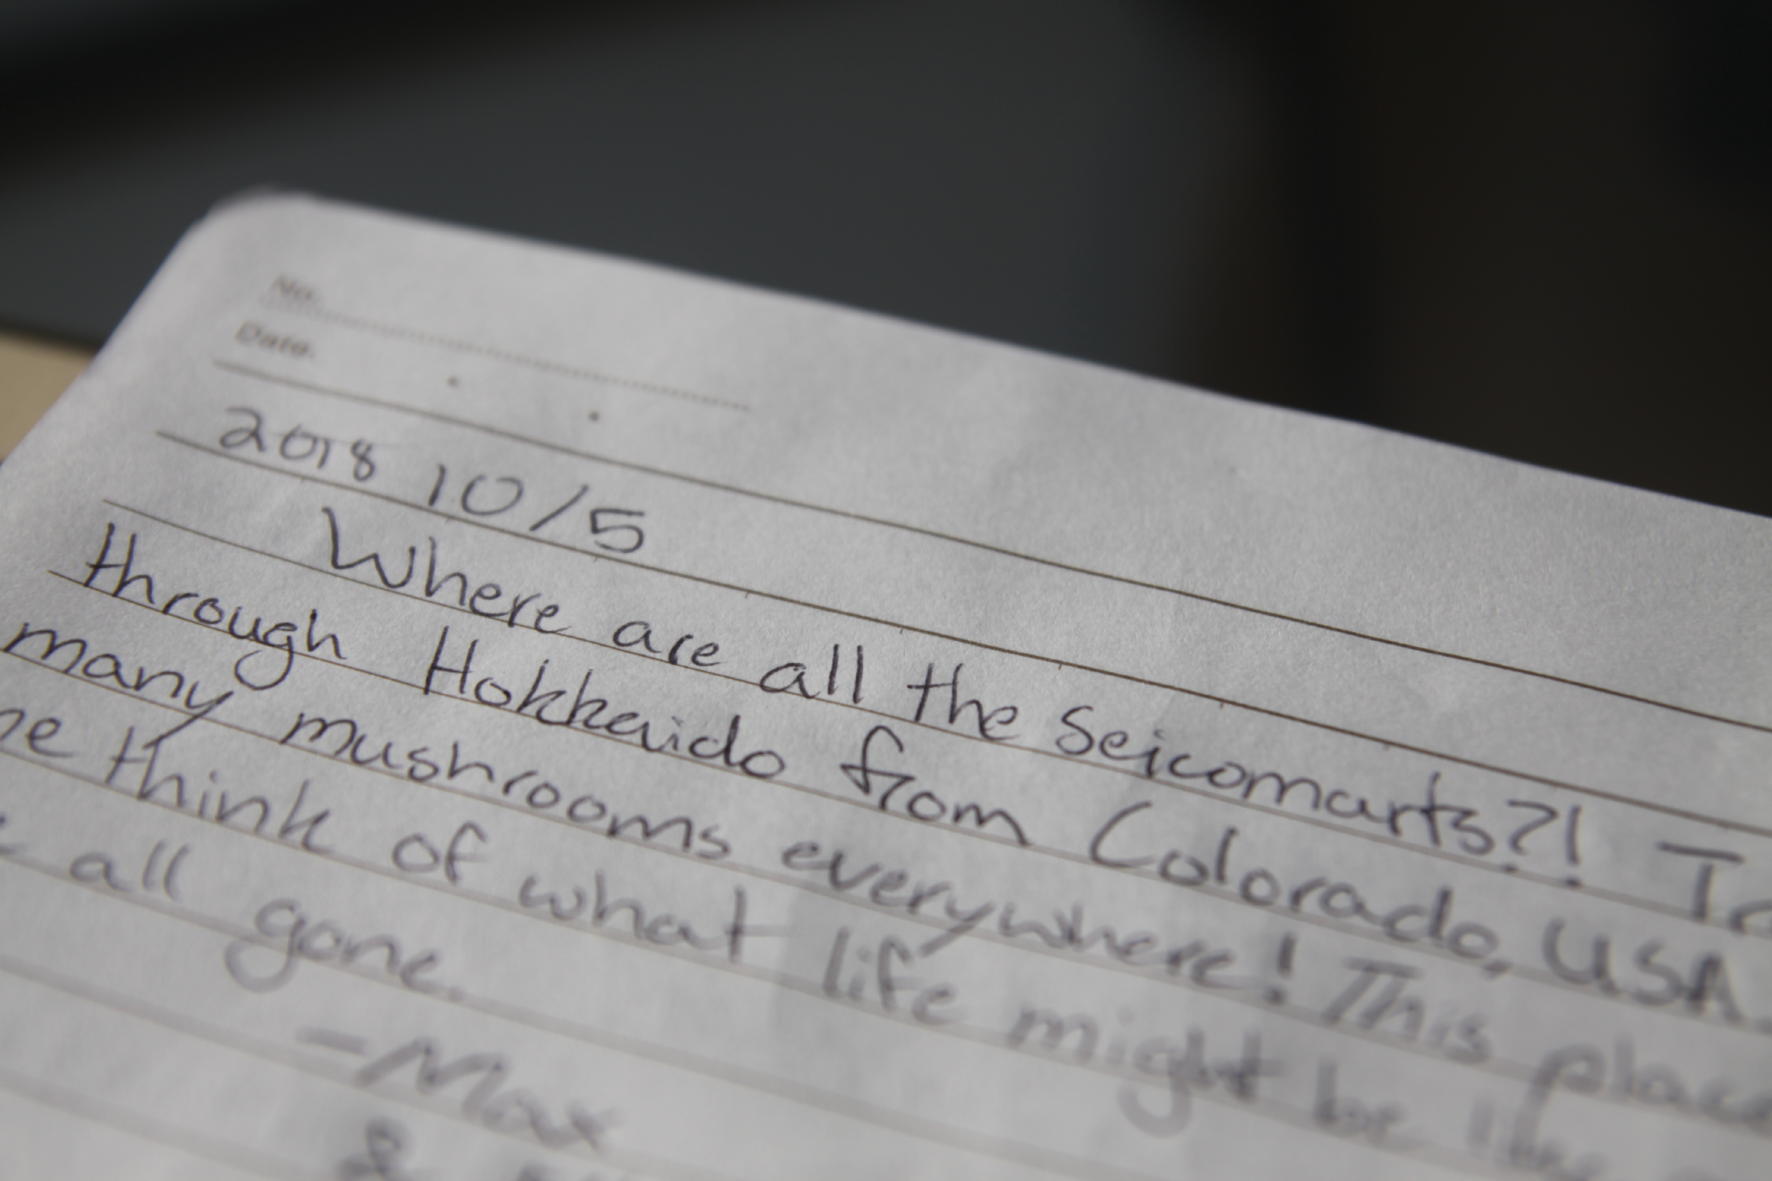 No.
Date.
2018 10/5
Where are all the Seicomarts?!
through Hokkaido from Colorado, USA.
many mushrooms everywhere! This place
think of what life might be like
all gone.
-Max
&